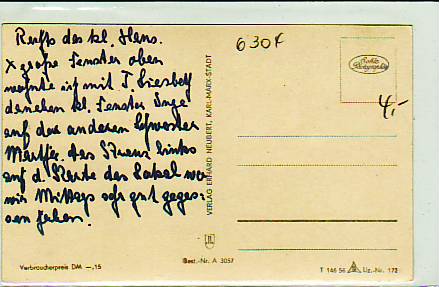 Rechts das kl. Haus.
x große Fenster oben
wohnte ich mit T. Liesbeth
daneben kl. Fenster Inge
auf der anderen
links
auf d. Seite das Lokal wo
wir Mittags sehr gut geges-
sen haben.
6304
4,-
Echte Photographie
VERLAG ERHARD NEUBERT, KARL-MARX-STADT
Verbraucherpreis DM —,15
Best.-Nr. A 3057
T 146 56 Lig.-Nr. 172